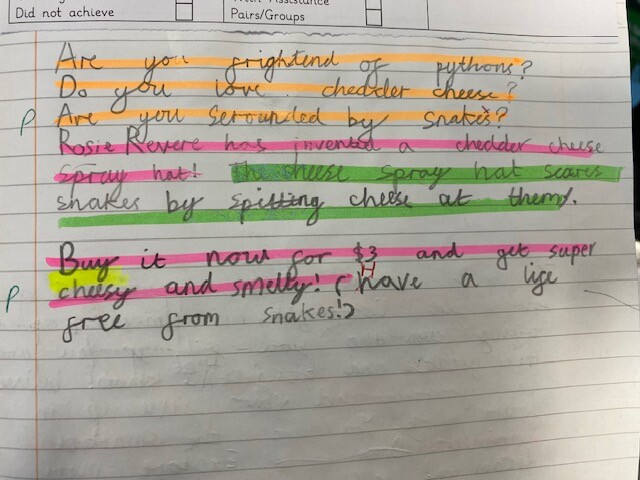 Did not achieve
With Assistance
Pairs/Groups
Are you grightend of pythons?
Do you love chedder cheese?
P Are you serounded by snakes?
Rosie Revere has invented a chedder cheese
spray hat! The cheese spray hat scares
snakes by spitting cheese at them.
Buy it now for $3 and get super
P cheesy and smelly! (Have a lige
free from snakes!)